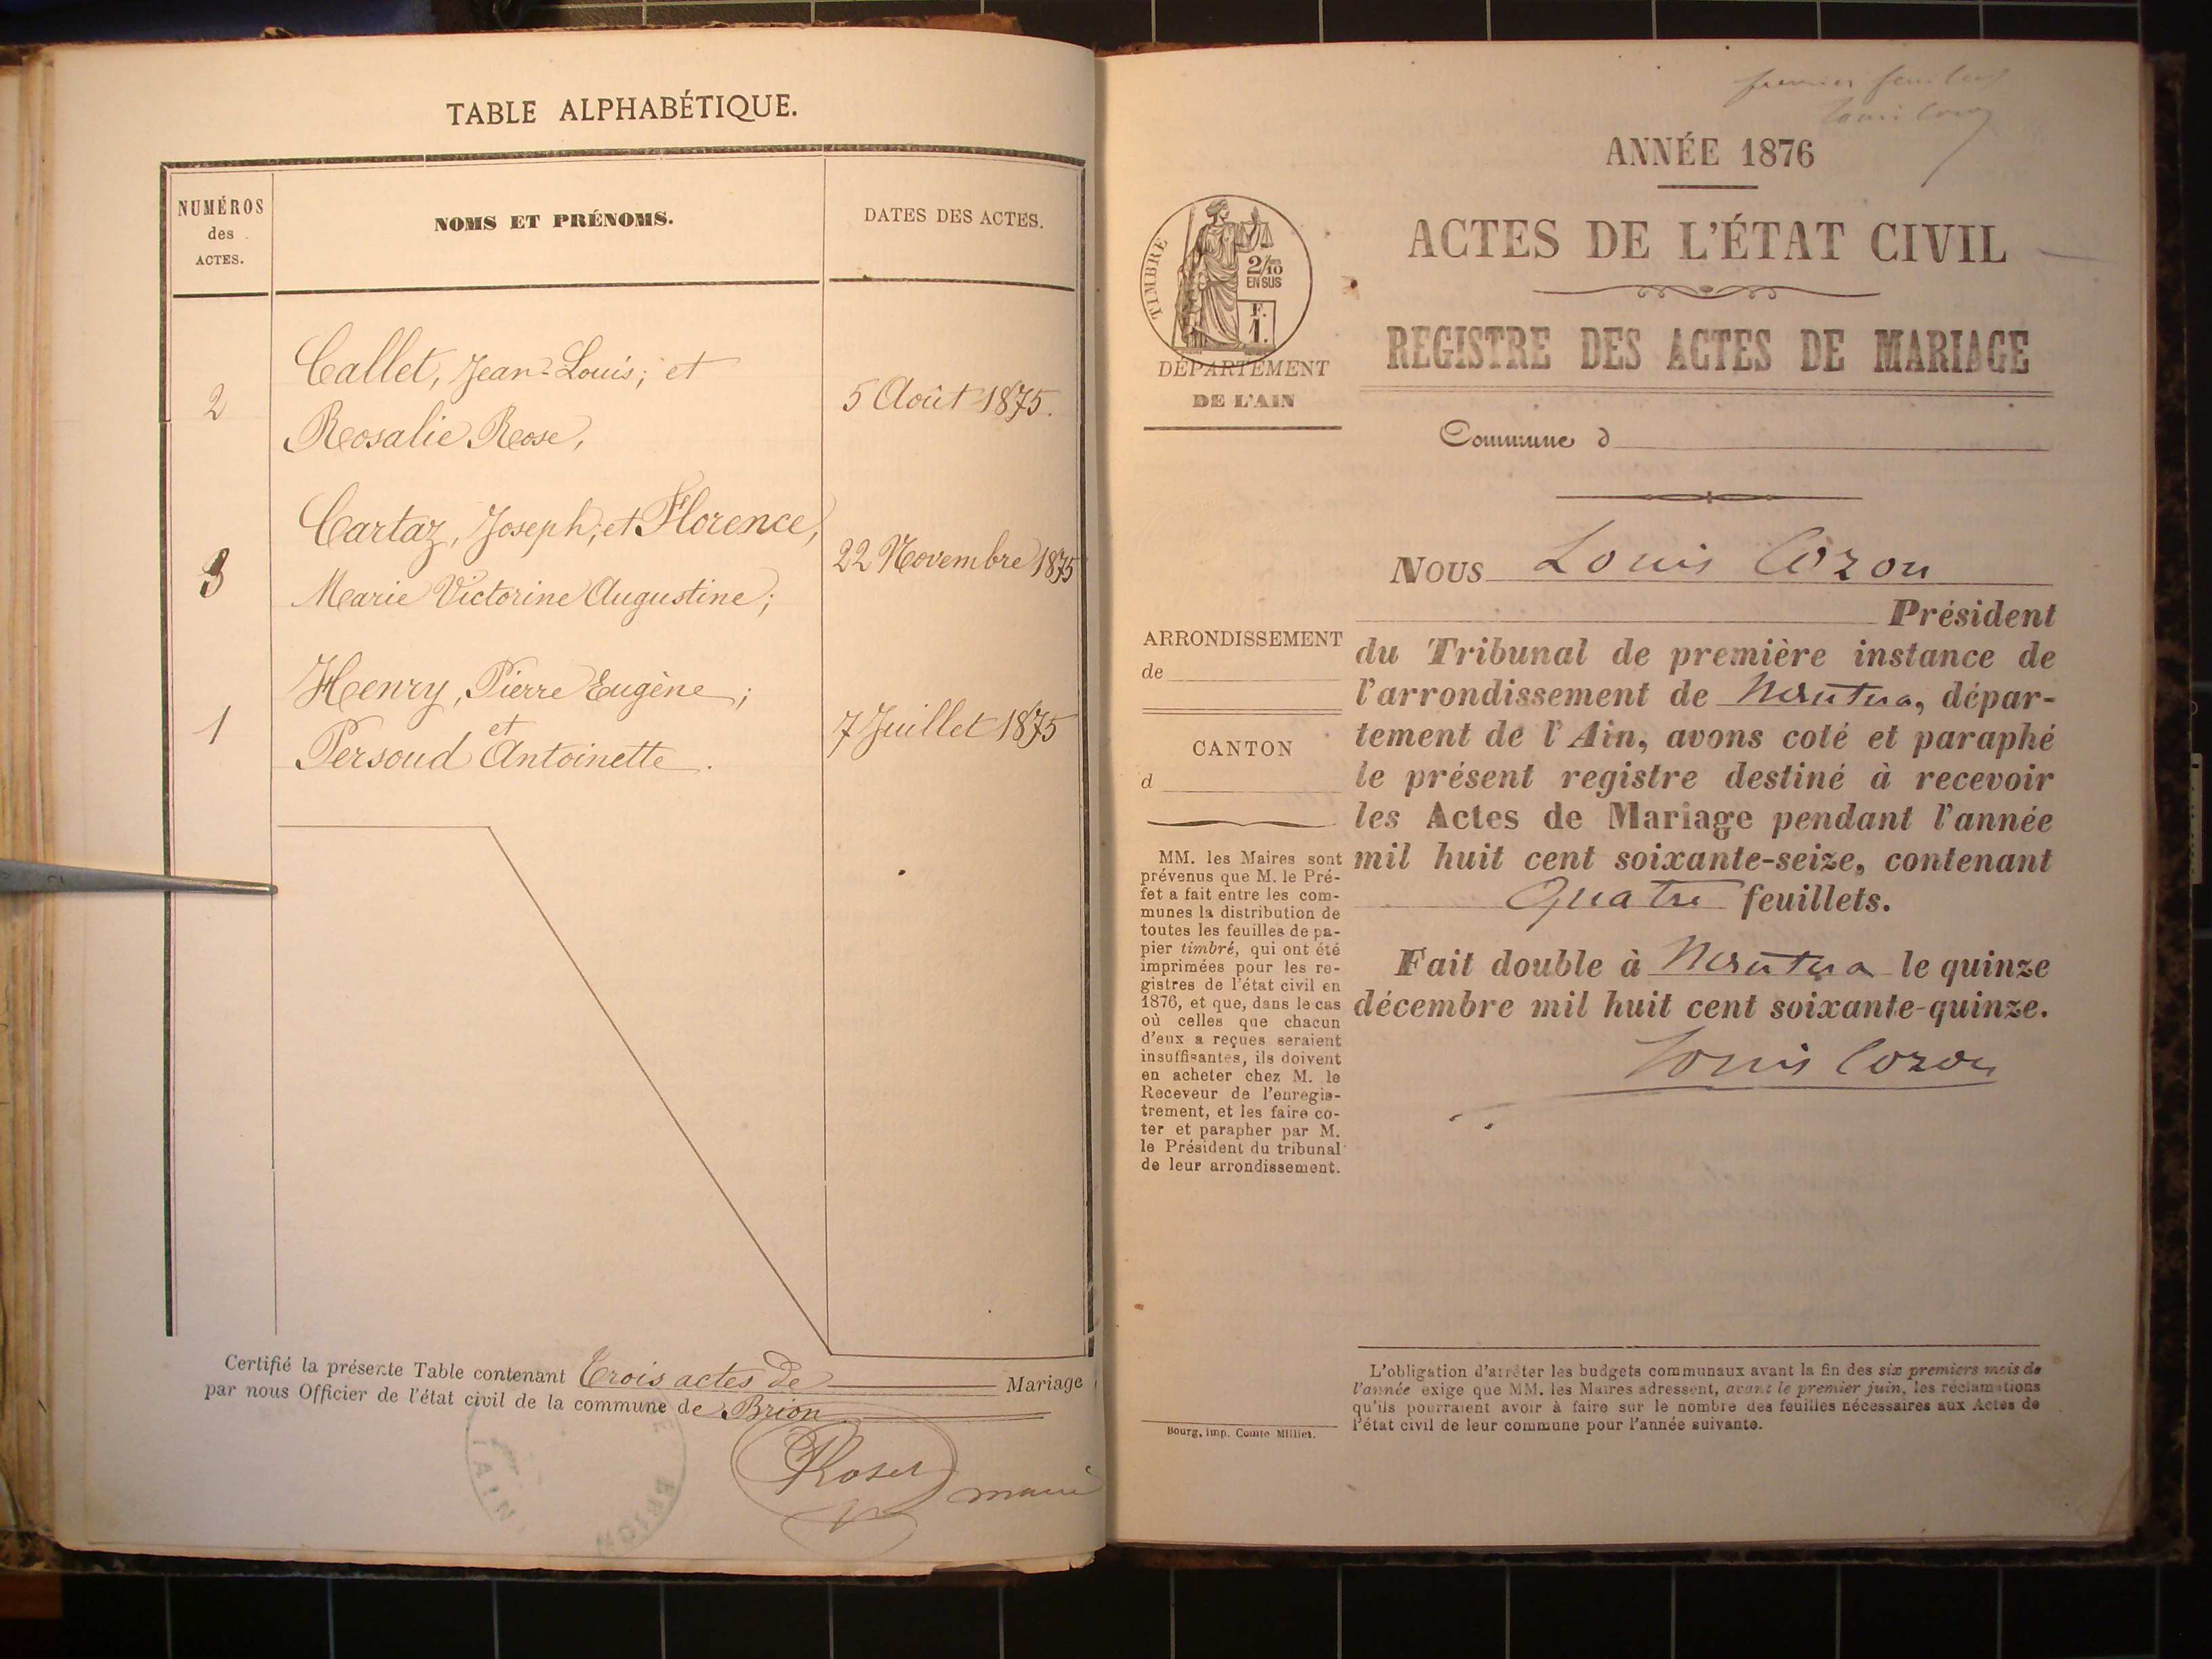 TABLE ALPHABÉTIQUE.
NUMÉROS
des
ACTES.
NOMS ET PRÉNOMS.
DATES DES ACTES.
2
Callet, Jean-Louis; et
Rosalie Rose,
5 Août 1875.
3
Cartaz, Joseph; et Florence,
Marie Victorine Augustine;
22 Novembre 1875
1
Henry, Pierre Eugène;
et
Persoud Antoinette.
7 Juillet 1875
Certifié la présente Table contenant Trois actes de Mariage
par nous Officier de l'état civil de la commune de Brion
maire
BRION
AIN
premier feuillet
Louis Cozon
ANNÉE 1876
ACTES DE L'ÉTAT CIVIL
REGISTRE DES ACTES DE MARIAGE
TIMBRE
2/10
EN SUS
F.
1.
DÉPARTEMENT
DE L'AIN
Commune d
ARRONDISSEMENT
de
CANTON
d
MM. les Maires sont
prévenus que M. le Pré-
fet a fait entre les com-
munes la distribution de
toutes les feuilles de pa-
pier timbré, qui ont été
imprimées pour les re-
gistres de l'état civil en
1876, et que, dans le cas
où celles que chacun
d'eux a reçues seraient
insuffisantes, ils doivent
en acheter chez M. le
Receveur de l'enregis-
trement, et les faire co-
ter et parapher par M.
le Président du tribunal
de leur arrondissement.
Bourg, imp. Comte Milliet.
Nous Louis Cozon
Président
du Tribunal de première instance de
l'arrondissement de Nantua, dépar-
tement de l'Ain, avons coté et paraphé
le présent registre destiné à recevoir
les Actes de Mariage pendant l'année
mil huit cent soixante-seize, contenant
Quatre feuillets.
Fait double à Nantua le quinze
décembre mil huit cent soixante-quinze.
Louis Cozon
L'obligation d'arrêter les budgets communaux avant la fin des six premiers mois de
l'année exige que MM. les Maires adressent, avant le premier juin, les réclamations
qu'ils pourraient avoir à faire sur le nombre des feuilles nécessaires aux Actes de
l'état civil de leur commune pour l'année suivante.